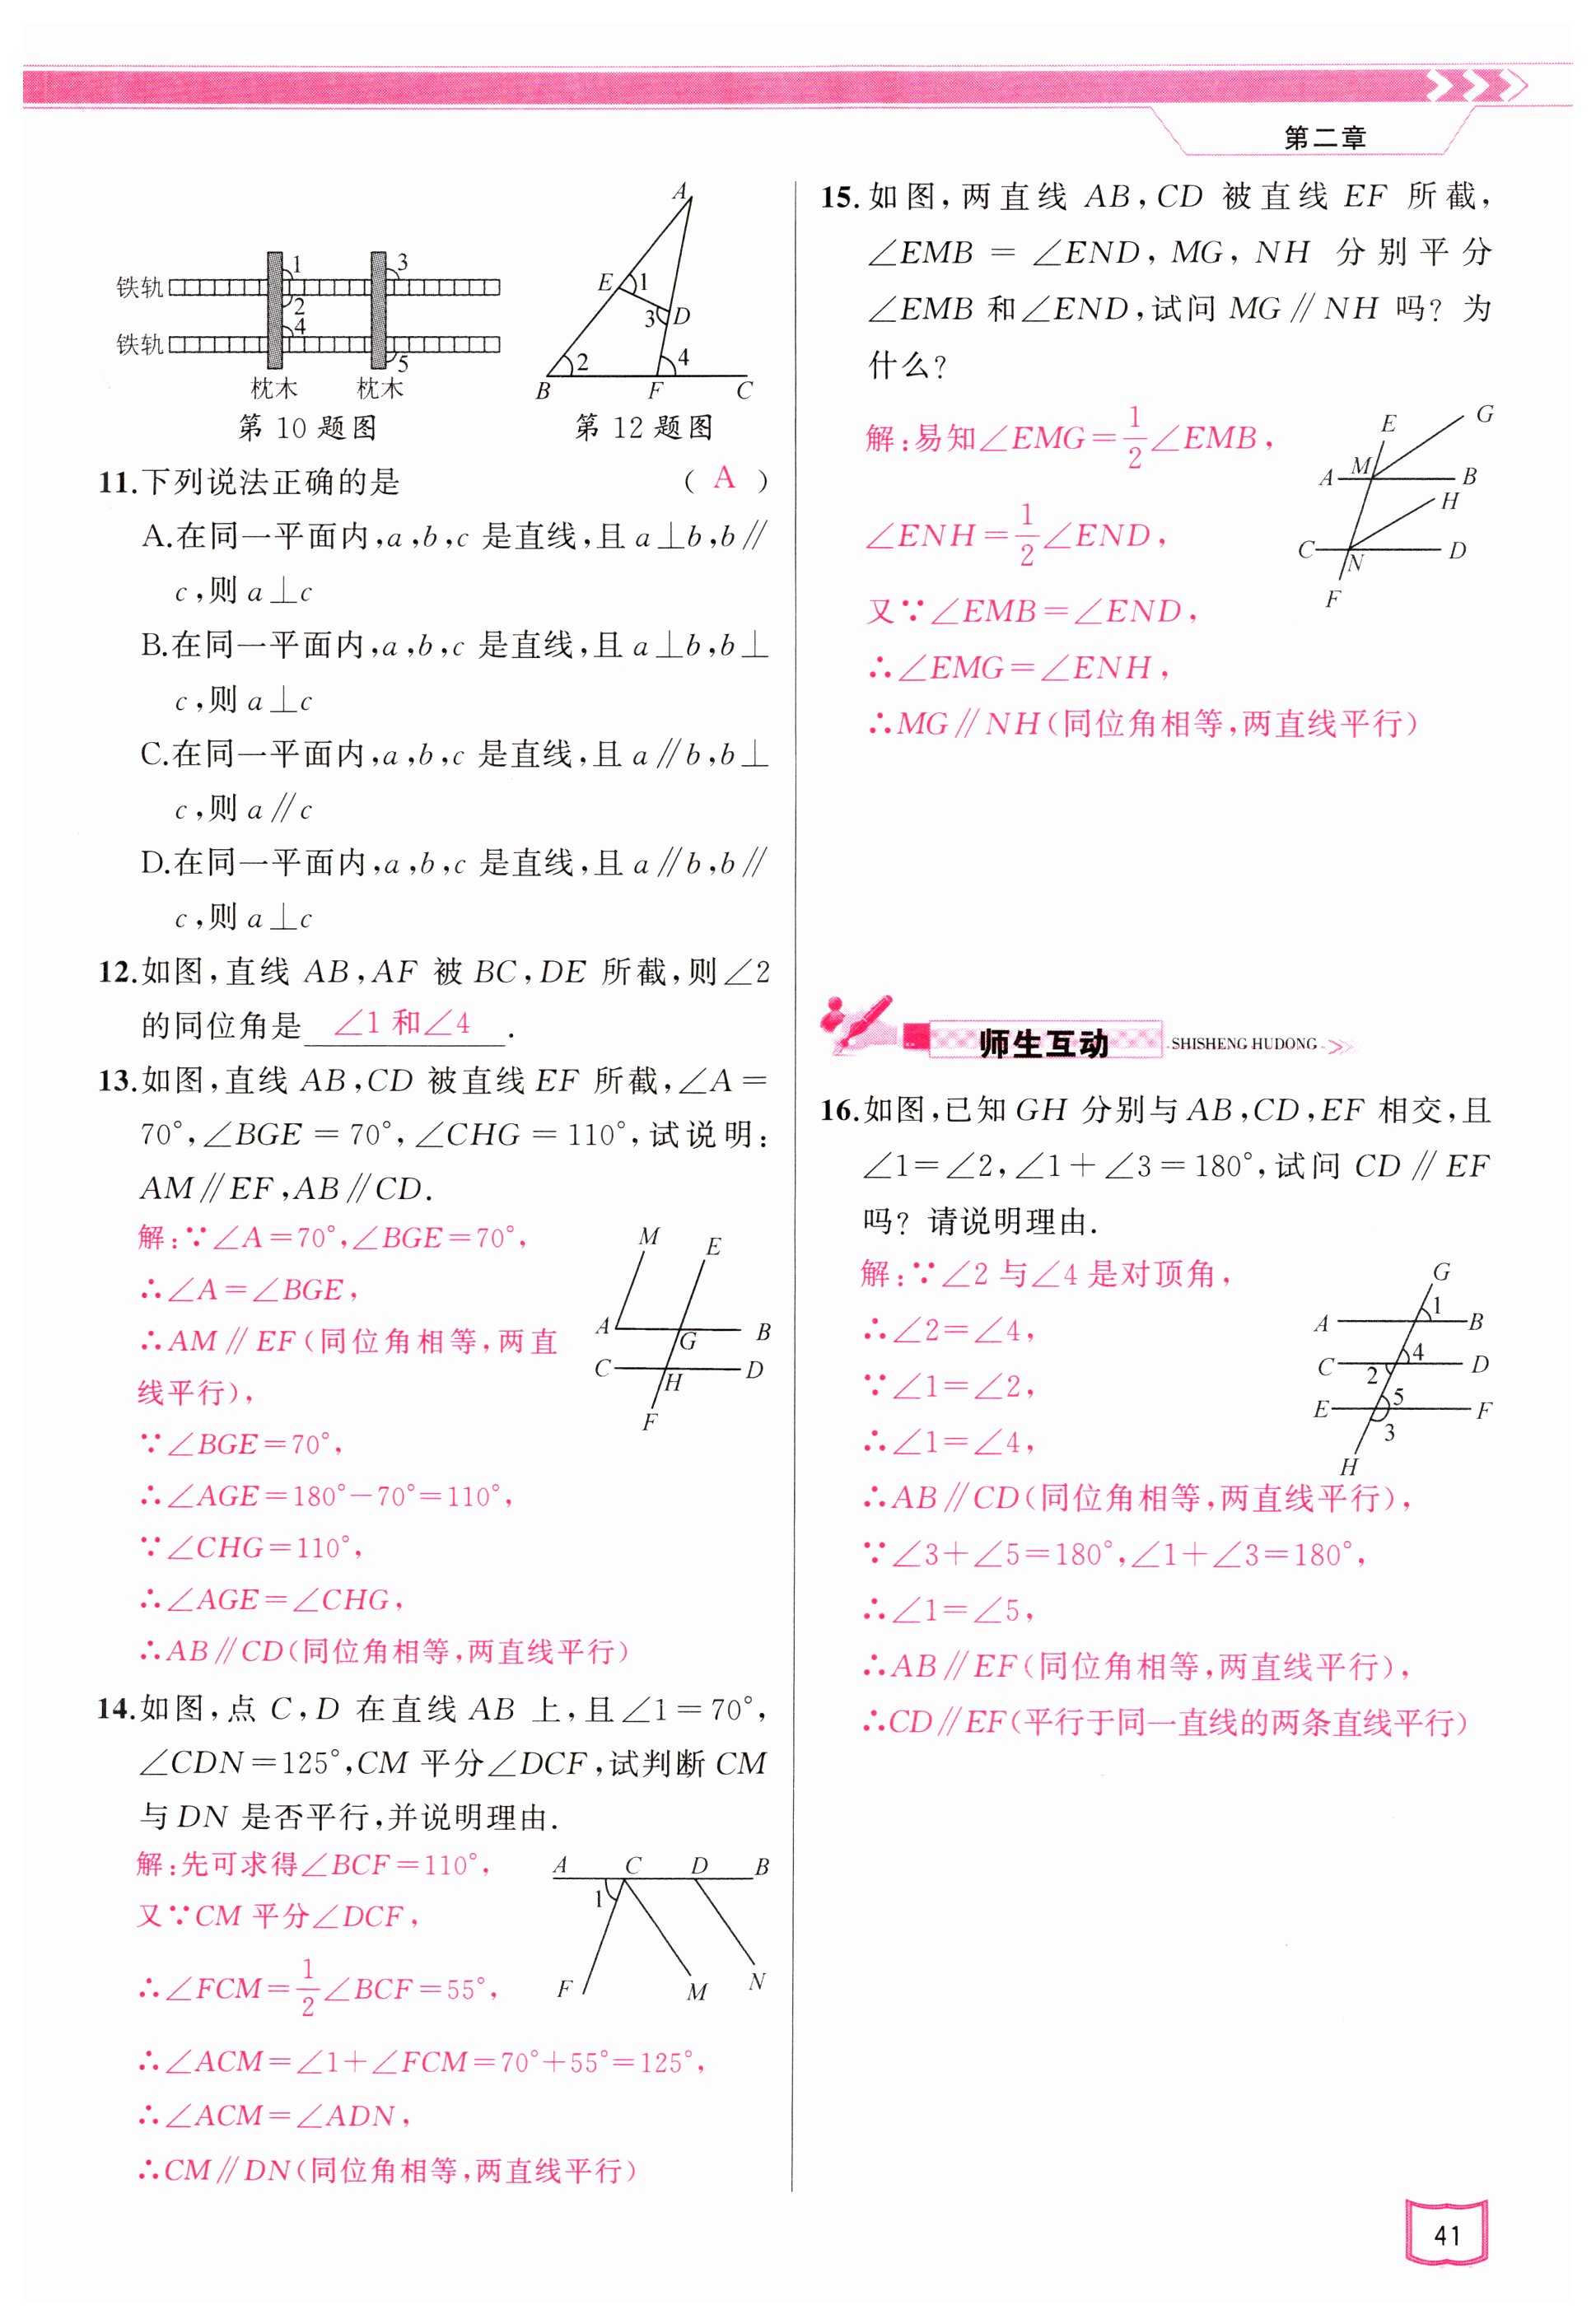 第二章
铁轨
铁轨
1
2
3
4
5
枕木 枕木
第 10 题图
A
E
1
3
D
2
4
B F C
第 12 题图
11.下列说法正确的是 ( A )
A.在同一平面内,a,b,c 是直线,且 a⊥b,b∥
c,则 a⊥c
B.在同一平面内,a,b,c 是直线,且 a⊥b,b⊥
c,则 a⊥c
C.在同一平面内,a,b,c 是直线,且 a∥b,b⊥
c,则 a∥c
D.在同一平面内,a,b,c 是直线,且 a∥b,b∥
c,则 a⊥c
12.如图,直线 AB,AF 被 BC,DE 所截,则∠2
的同位角是 ∠1 和∠4 .
13.如图,直线 AB,CD 被直线 EF 所截,∠A=
70°,∠BGE=70°,∠CHG=110°,试说明:
AM∥EF,AB∥CD.
解:∵∠A=70°,∠BGE=70°,
∴∠A=∠BGE,
∴AM∥EF(同位角相等,两直
线平行),
∵∠BGE=70°,
∴∠AGE=180°-70°=110°,
∵∠CHG=110°,
∴∠AGE=∠CHG,
∴AB∥CD(同位角相等,两直线平行)
M E
A G B
C H D
F
14.如图,点 C,D 在直线 AB 上,且∠1=70°,
∠CDN=125°,CM 平分∠DCF,试判断 CM
与 DN 是否平行,并说明理由.
解:先可求得∠BCF=110°,
又∵CM 平分∠DCF,
∴∠FCM=1/2∠BCF=55°,
∴∠ACM=∠1+∠FCM=70°+55°=125°,
∴∠ACM=∠ADN,
∴CM∥DN(同位角相等,两直线平行)
A C D B
1
F M N
15.如图,两直线 AB,CD 被直线 EF 所截,
∠EMB=∠END,MG,NH 分别平分
∠EMB 和∠END,试问 MG∥NH 吗? 为
什么?
解:易知∠EMG=1/2∠EMB,
∠ENH=1/2∠END,
又∵∠EMB=∠END,
∴∠EMG=∠ENH,
∴MG∥NH(同位角相等,两直线平行)
E G
A M B
H
C N D
F
师生互动 SHISHENG HUDONG
16.如图,已知 GH 分别与 AB,CD,EF 相交,且
∠1=∠2,∠1+∠3=180°,试问 CD∥EF
吗? 请说明理由.
解:∵∠2 与∠4 是对顶角,
∴∠2=∠4,
∵∠1=∠2,
∴∠1=∠4,
∴AB∥CD(同位角相等,两直线平行),
∵∠3+∠5=180°,∠1+∠3=180°,
∴∠1=∠5,
∴AB∥EF(同位角相等,两直线平行),
∴CD∥EF(平行于同一直线的两条直线平行)
G
A 1 B
C 2 4 D
E 5 F
3
H
41